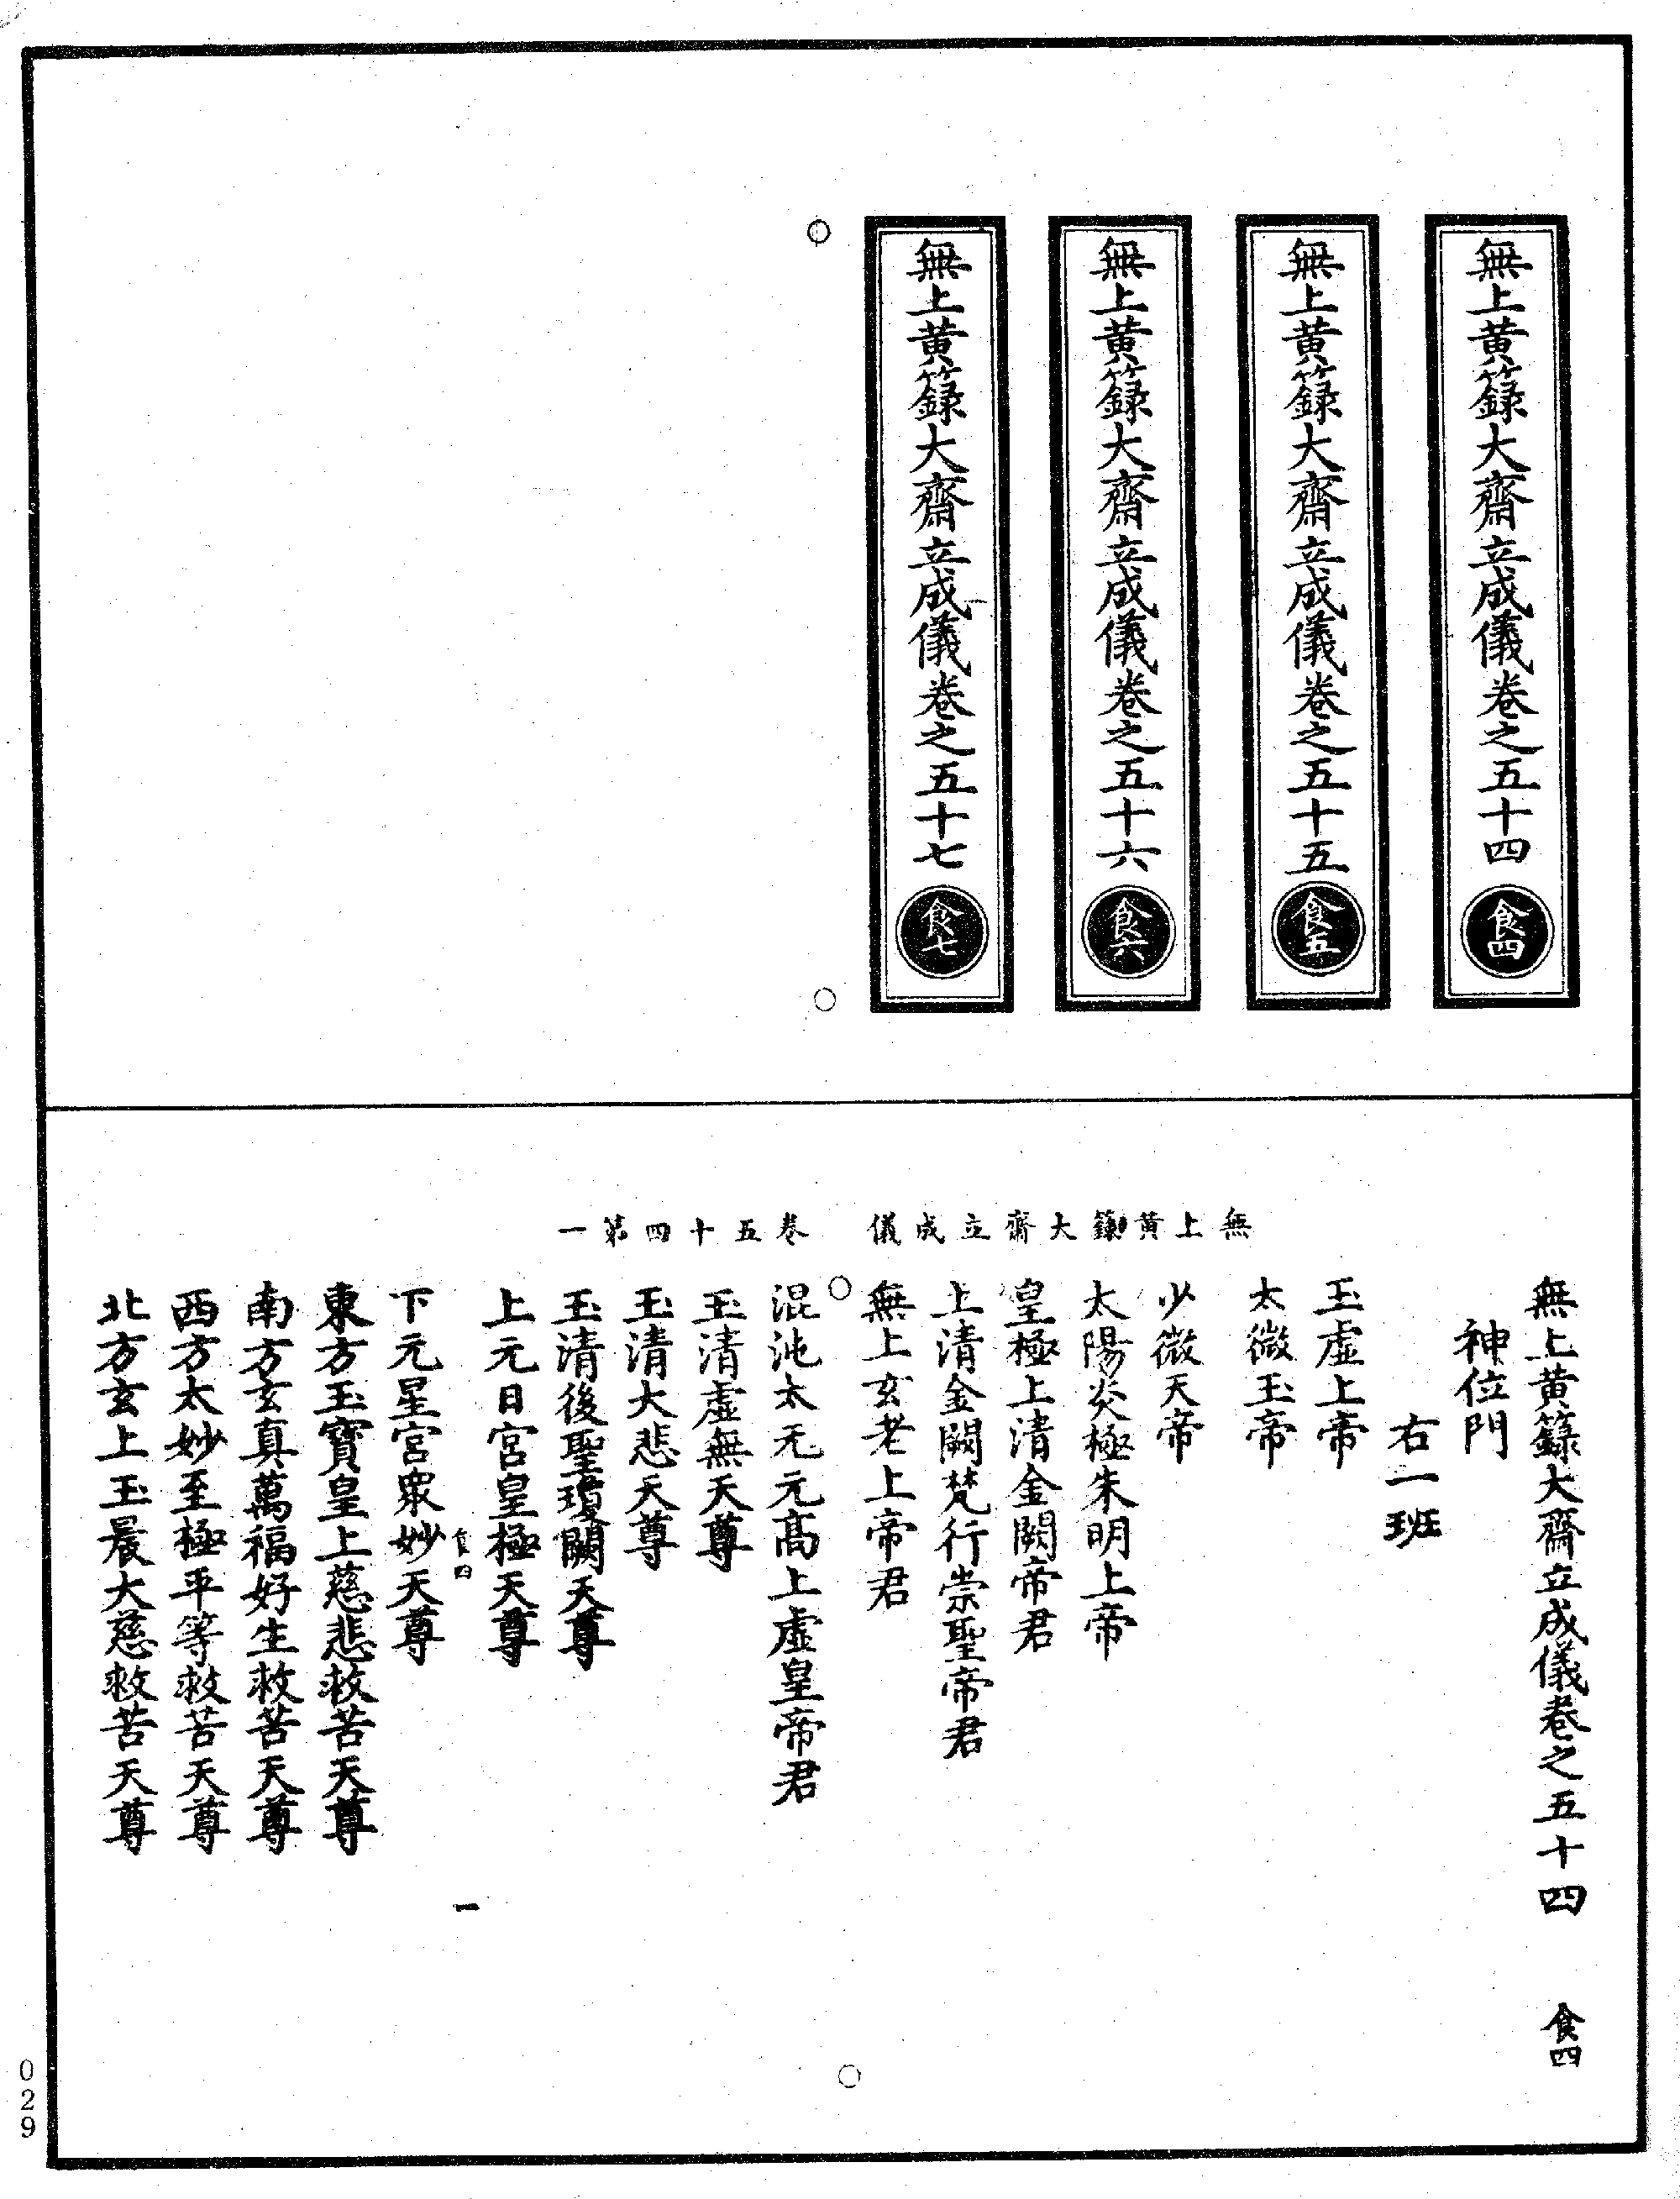 無上黃籙大齋立成儀卷之五十四 食四
無上黃籙大齋立成儀卷之五十五 食五
無上黃籙大齋立成儀卷之五十六 食六
無上黃籙大齋立成儀卷之五十七 食七
無上黃籙大齋立成儀 卷五十四第一
無上黃籙大齋立成儀卷之五十四 食四
神位門
右一班
玉虛上帝
太微玉帝
少微天帝
太陽炎極朱明上帝
皇極上清金闕帝君
上清金闕梵行崇聖帝君
無上玄老上帝君
混沌太无元高上虛皇帝君
玉清虛無天尊
玉清大悲天尊
玉清後聖瓊闕天尊
上元日宮皇極天尊
食四 一
下元星宮衆妙天尊
東方玉寶皇上慈悲救苦天尊
南方玄真萬福好生救苦天尊
西方太妙至極平等救苦天尊
北方玄上玉晨大慈救苦天尊
029